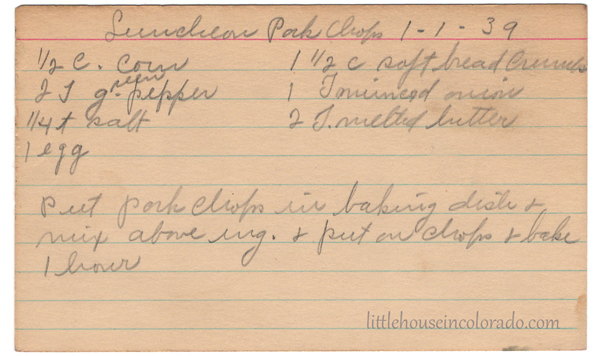 Luncheon Pork Chops 1-1-39
1/2 c. corn
2 T green pepper
1/4 t salt
1 egg
1 1/2 c soft bread crumbs
1 T minced onion
2 T. melted butter
Put pork chops in baking dish &
mix above ing. & put on chops & bake
1 hour
littlehouseincolorado.com